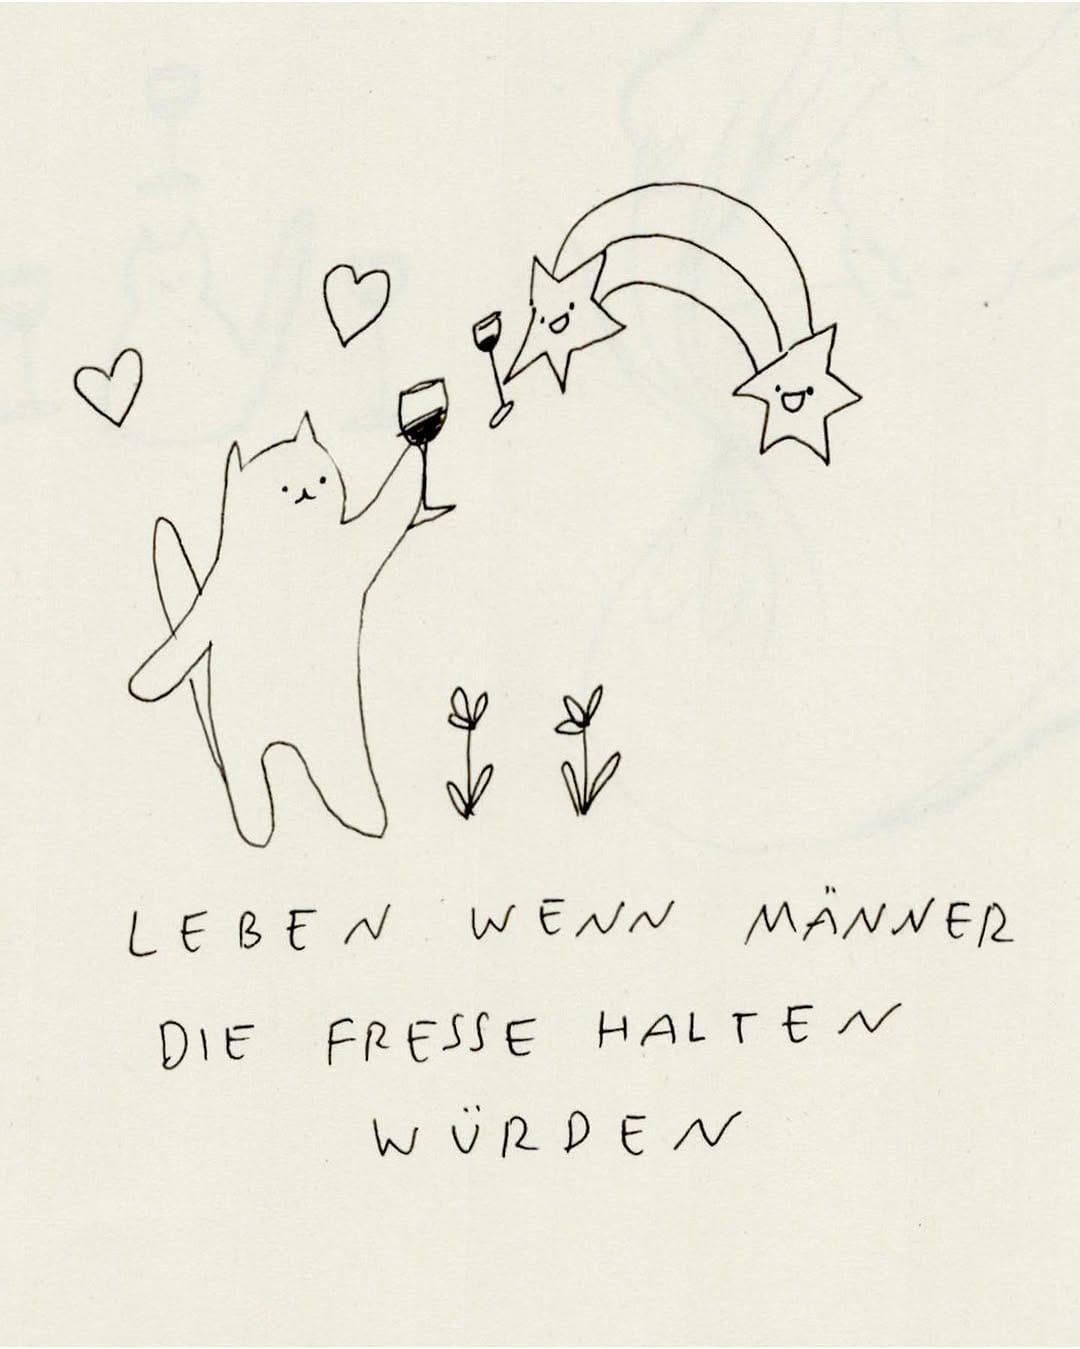 LEBEN WENN MÄNNER
DIE FRESSE HALTEN
WÜRDEN